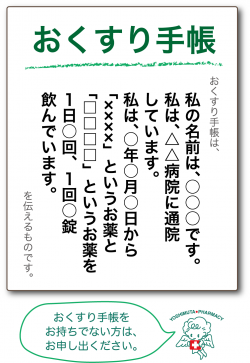 おくすり手帳
おくすり手帳は、
私の名前は、○○○です。
私は、△△病院に通院
しています。
私は、○年○月○日から
「××××」というお薬と
「□□□□」というお薬を
1日○回、1回○錠
飲んでいます。
を伝えるものです。
おくすり手帳を
お持ちでない方は、
お申し出ください。
YOSHIMUTA★PHARMACY